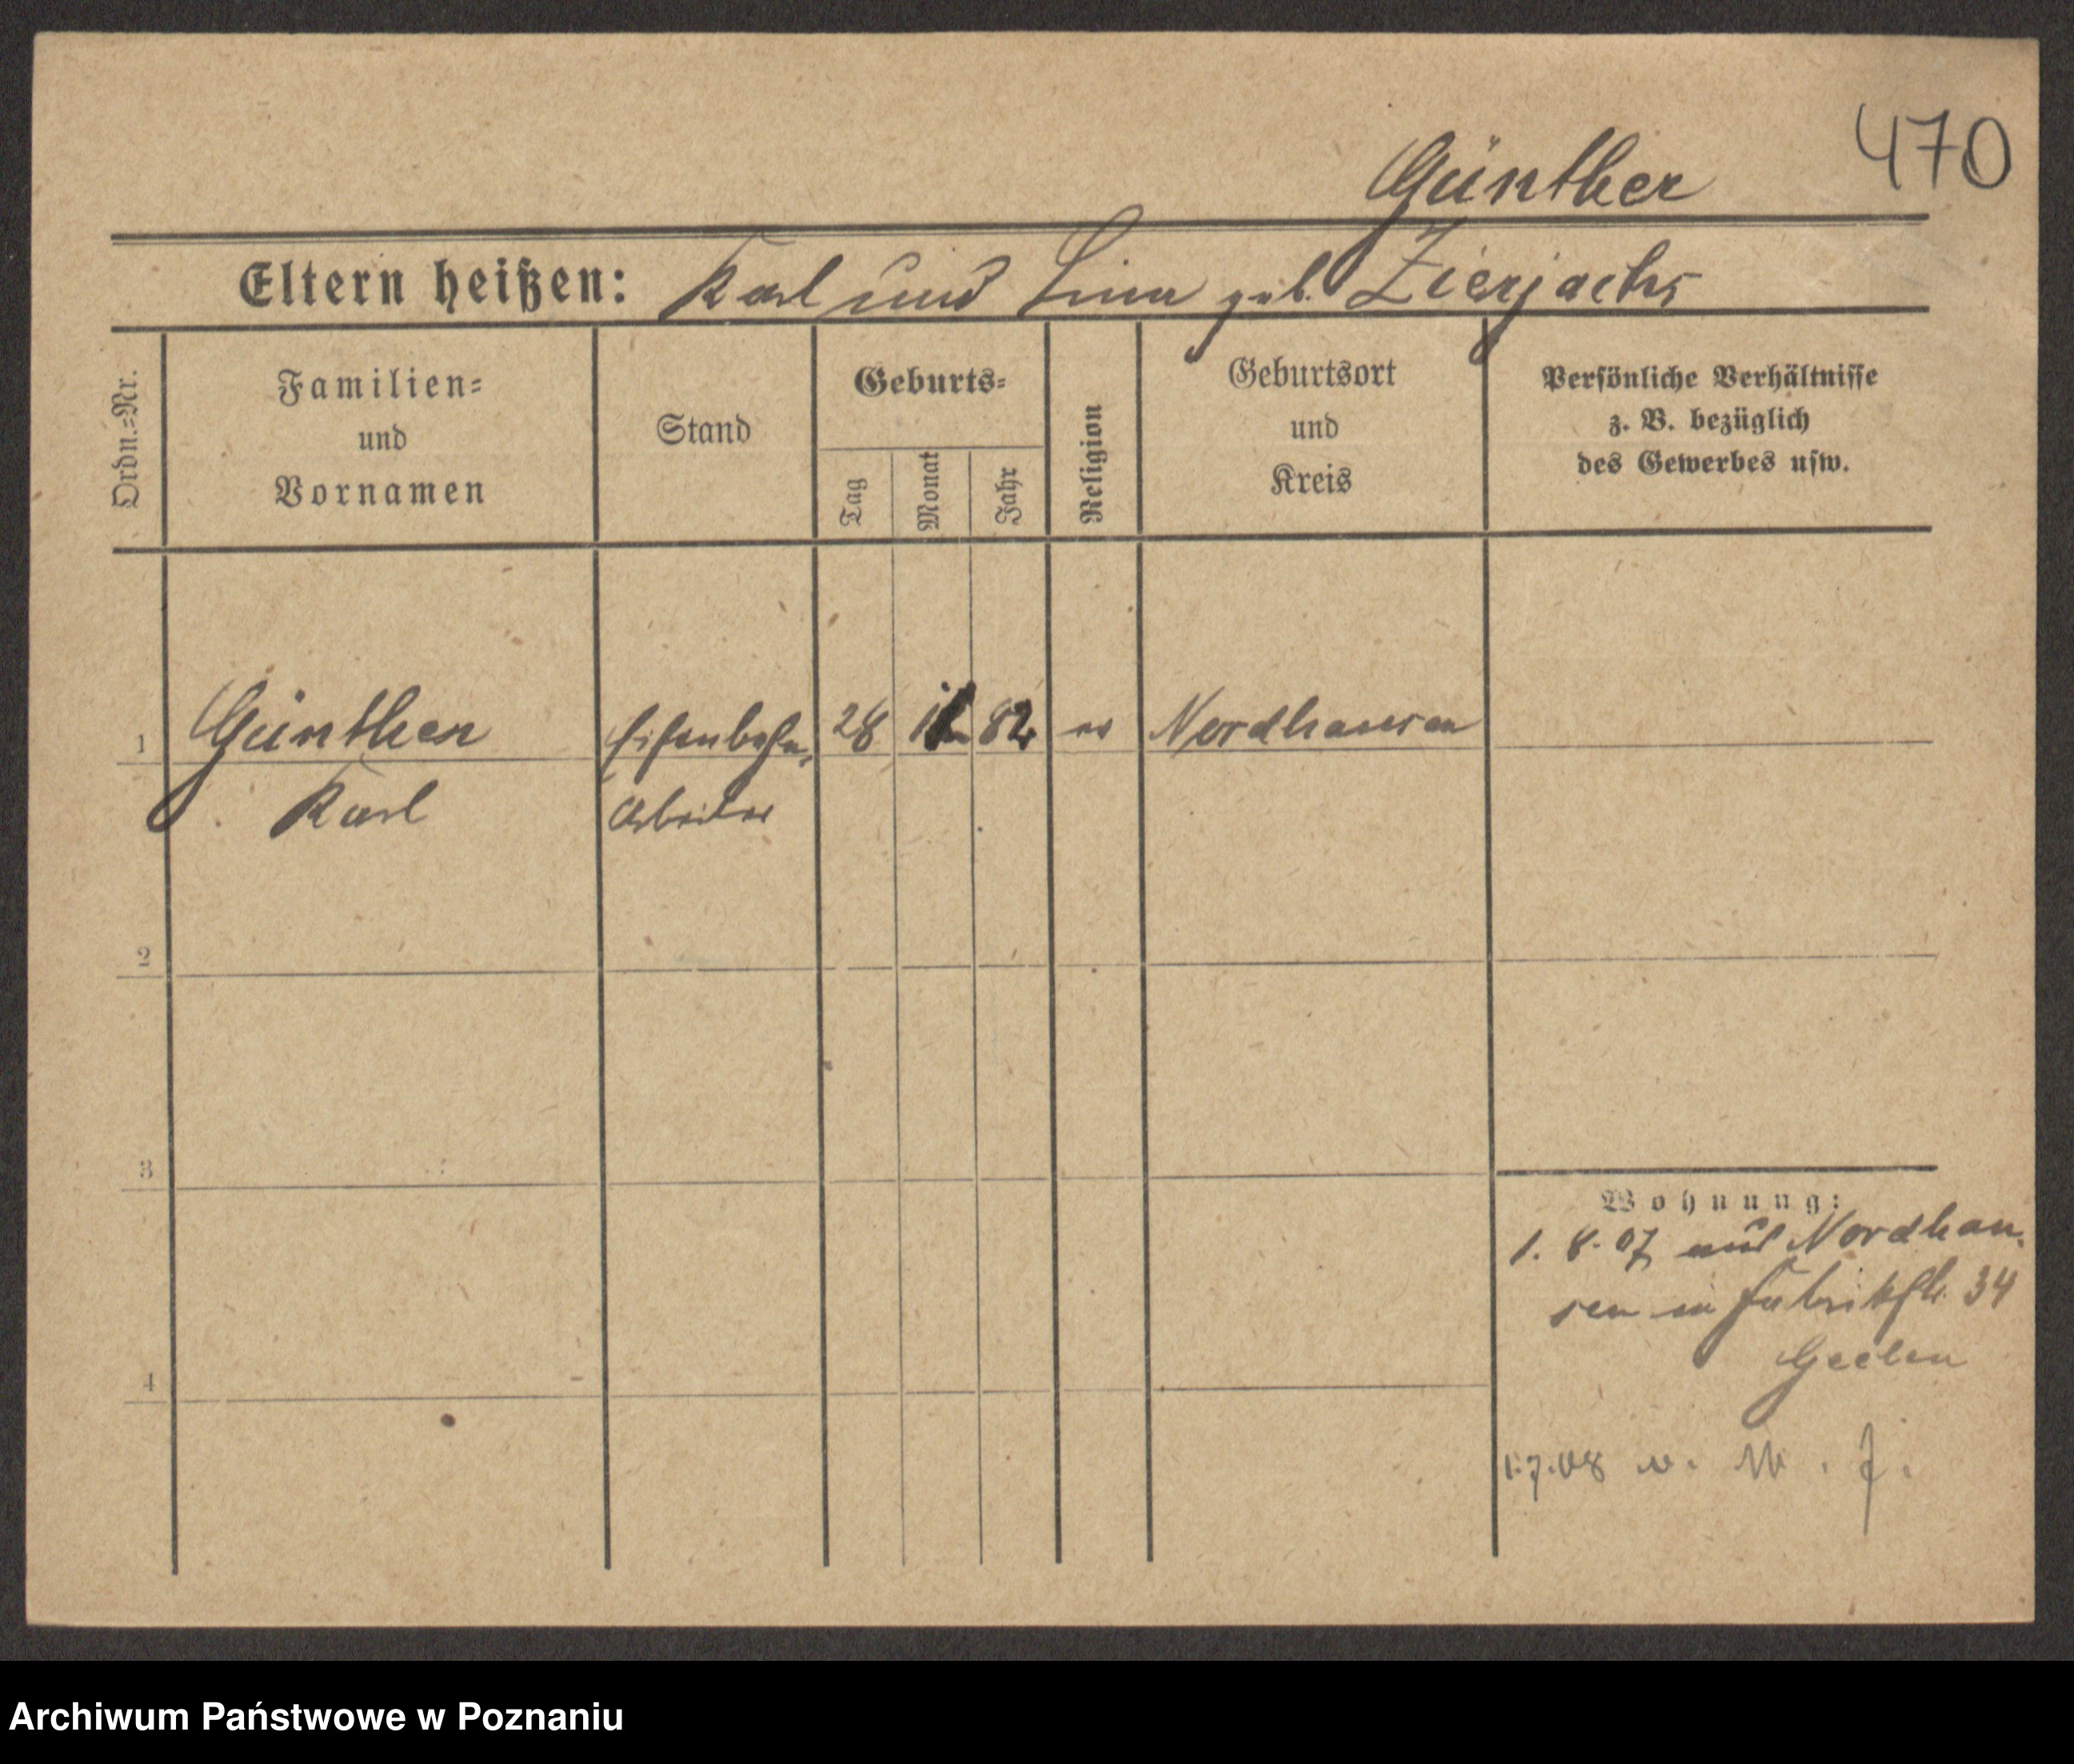 470
Günther
Eltern heißen: Karl und Lina geb. Zierjacks
Ordn.=Nr.
Familien=
und
Vornamen
Stand
Geburts=
Tag
Monat
Jahr
Religion
Geburtsort
und
Kreis
Persönliche Verhältnisse
z. B. bezüglich
des Gewerbes usw.
1 Günther Eisenbahn 28 82 ev Nordhausen
Karl Arbeiter
2
3
4
Wohnung:
1. 8. 07 aus Nordhau
sen in Fabrikstr. 34
1.7.08
Archiwum Państwowe w Poznaniu